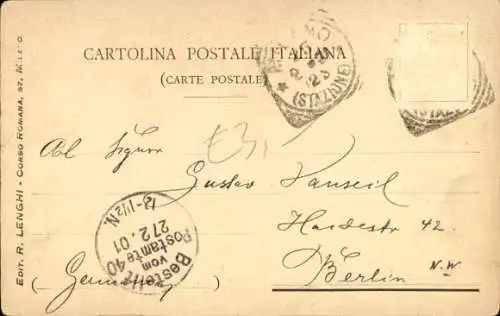 CARTOLINA POSTALE ITALIANA
(CARTE POSTALE)
MILANO
(STAZIONE)
EDIT. R. LENGHI - CORSO ROMANA, 57, MILANO
£3,
Al Signor
Gustav
Haidestr 42
Berlin N.W
(Germania)
Bestellt
vom
Postamte 40
27.2.01
12-1½N.